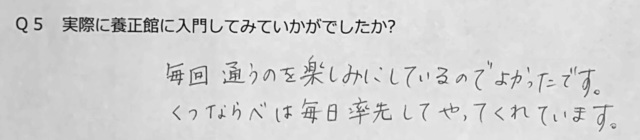 Q5 実際に養正館に入門してみていかがでしたか?
毎回 通うのを楽しみにしているのでよかったです。
くつならべは毎日率先してやってくれています。